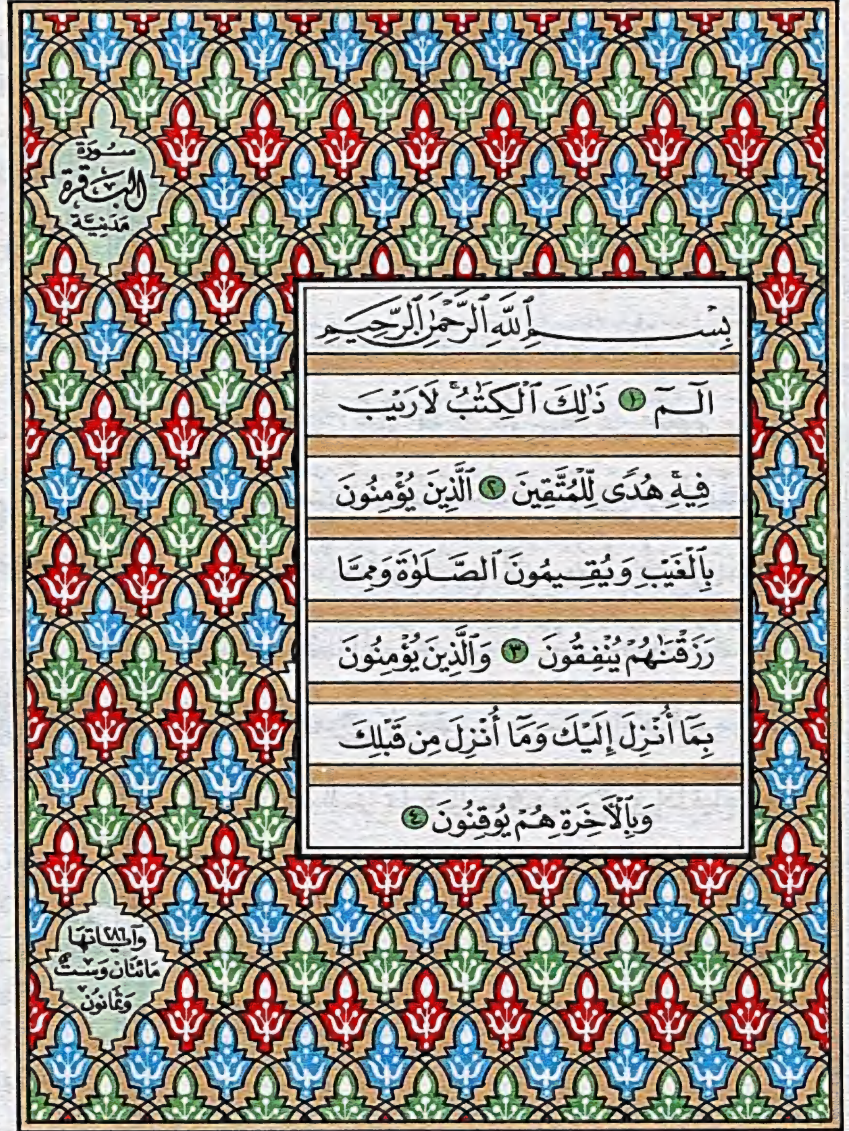 سُورَةُ
البَقَرَةِ
مَدَنِيَّة
بِسْمِ ٱللَّهِ ٱلرَّحْمَٰنِ ٱلرَّحِيمِ
الٓمٓ ١ ذَٰلِكَ ٱلْكِتَٰبُ لَا رَيْبَ
فِيهِ هُدًى لِّلْمُتَّقِينَ ٢ ٱلَّذِينَ يُؤْمِنُونَ
بِٱلْغَيْبِ وَيُقِيمُونَ ٱلصَّلَوٰةَ وَمِمَّا
رَزَقْنَٰهُمْ يُنْفِقُونَ ٣ وَٱلَّذِينَ يُؤْمِنُونَ
بِمَآ أُنْزِلَ إِلَيْكَ وَمَآ أُنْزِلَ مِن قَبْلِكَ
وَبِٱلْآخِرَةِ هُمْ يُوقِنُونَ ٤
٢٨٦
مائتان وست
وثمانون